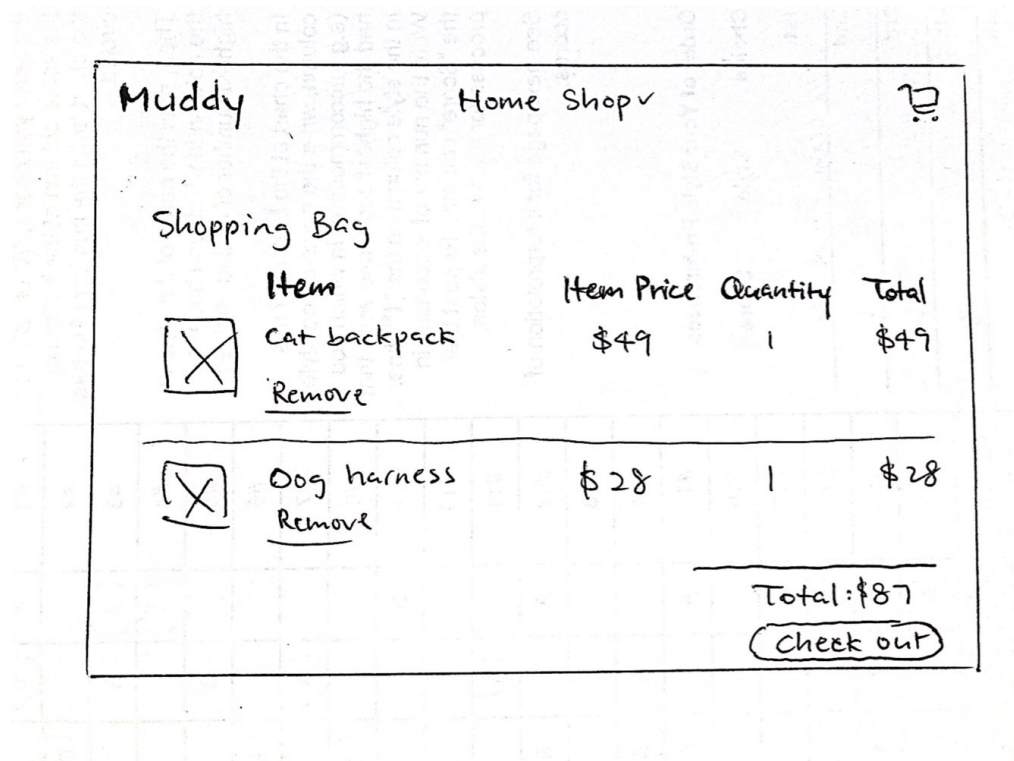 Muddy Home Shop
Shopping Bag
Item Item Price Quantity Total
Cat backpack $49 1 $49
Remove
Dog harness $28 1 $28
Remove
Total: $87
Check out